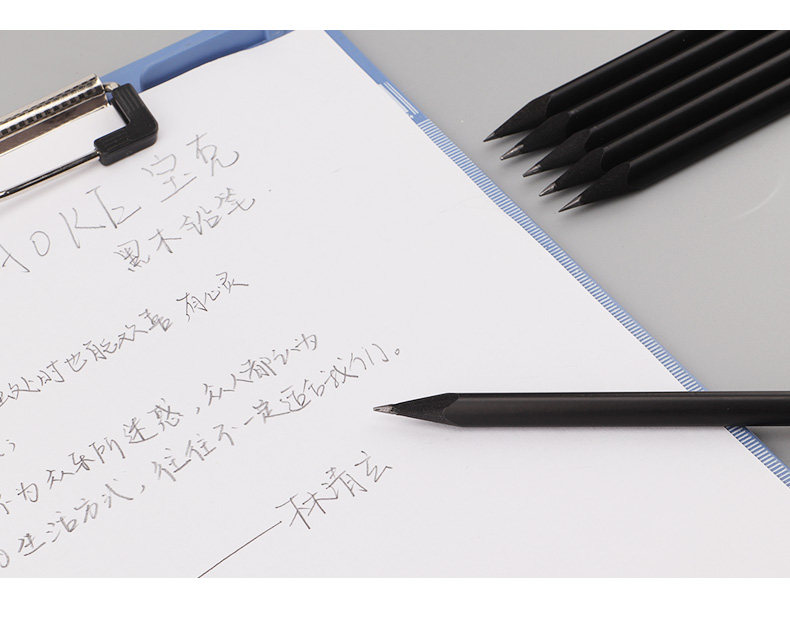 AOKE 宝克
黑木铅笔
处时也能欢喜,有心灵
不为众乐所迷惑,众人都认为
生活方式,往往不一定适合我们。
——林清玄